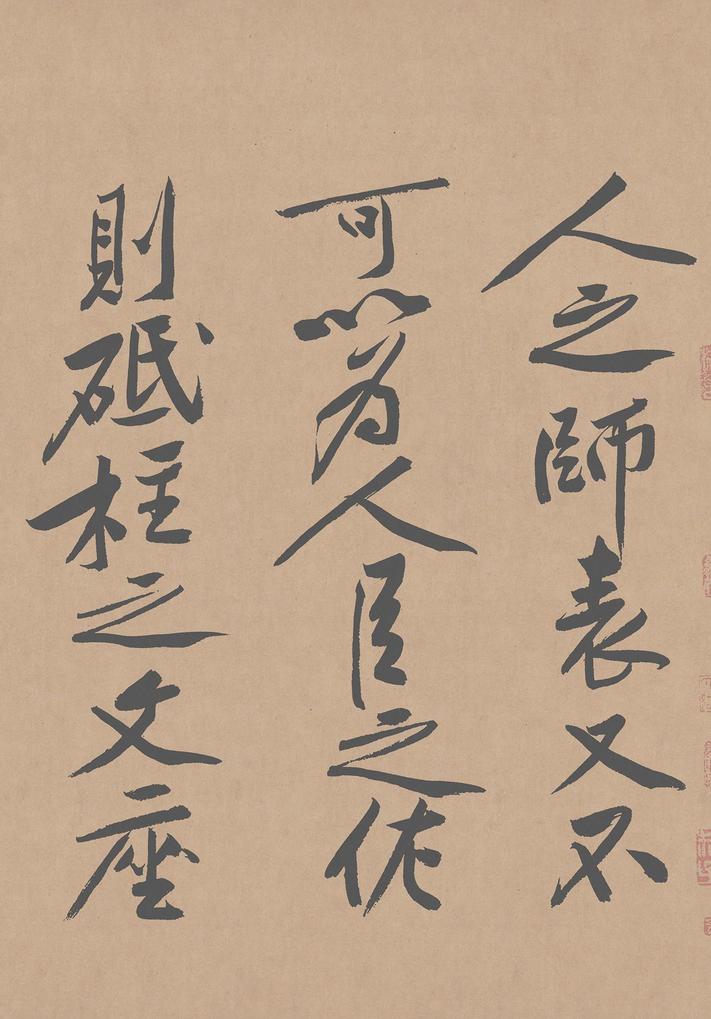 人之師表又不
可以為人臣之佐
則砥柱之文座